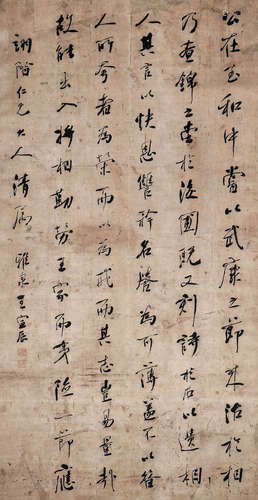 公在至和中嘗以武康之節來治於相
乃畫錦之堂於後圃既又刻詩於石以遺相
人其言以快恩讎矜名譽為可薄蓋不以昔
人所夸者為榮而以為戒而其志豈易量哉
故能出入將相勤勞王家而夷險一節應
階仁兄大人清屬 王宣辰